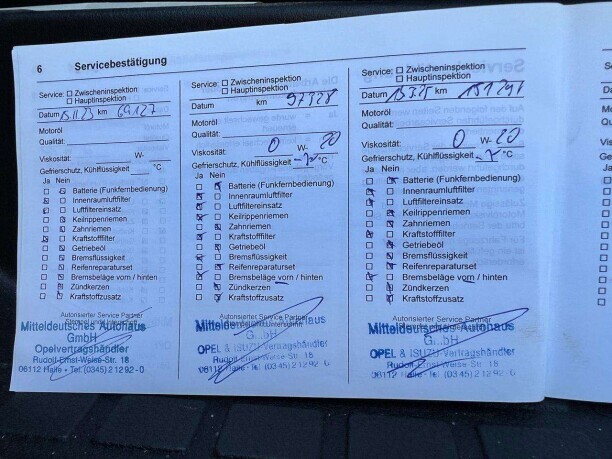 6 Servicebestätigung
Service: Zwischeninspektion
Hauptinspektion
Datum km 69127
Motoröl
Qualität:
Viskosität: W-
Gefrierschutz, Kühlflüssigkeit °C
Ja Nein
Batterie (Funkfernbedienung)
Innenraumluftfilter
Luftfiltereinsatz
Keilrippenriemen
Zahnriemen
Kraftstofffilter
Getriebeöl
Bremsflüssigkeit
Reifenreparaturset
Bremsbeläge vorn / hinten
Zündkerzen
Kraftstoffzusatz
Autorisierter Service Partner
Mitteldeutsches Autohaus
GmbH
Opelvertragshändler
Rudolf-Ernst-Weise-Str. 18
06112 Halle • Tel. (0345) 2 12 92 - 0
Service: Zwischeninspektion
Hauptinspektion
Datum km 97728
Motoröl
Qualität:
Viskosität: 0 W- 20
Gefrierschutz, Kühlflüssigkeit °C
Ja Nein
Batterie (Funkfernbedienung)
Innenraumluftfilter
Luftfiltereinsatz
Keilrippenriemen
Zahnriemen
Kraftstofffilter
Getriebeöl
Bremsflüssigkeit
Reifenreparaturset
Bremsbeläge vorn / hinten
Zündkerzen
Kraftstoffzusatz
Autorisierter Service Partner
Mitteldeutsches Autohaus
OPEL & ISUZU-Vertragshändler
Rudolf-Ernst-Weise-Str. 18
06112 Halle • Tel. (0345) 2 12 92 - 0
Service: Zwischeninspektion
Hauptinspektion
Datum km
Motoröl
Qualität:
Viskosität: 0 W- 20
Gefrierschutz, Kühlflüssigkeit °C
Ja Nein
Batterie (Funkfernbedienung)
Innenraumluftfilter
Luftfiltereinsatz
Keilrippenriemen
Zahnriemen
Kraftstofffilter
Getriebeöl
Bremsflüssigkeit
Reifenreparaturset
Bremsbeläge vorn / hinten
Zündkerzen
Kraftstoffzusatz
Autorisierter Service Partner
Mitteldeutsches Autohaus
OPEL & ISUZU-Vertragshändler
Rudolf-Ernst-Weise-Str. 18
06112 Halle • Tel. (0345) 2 12 92 - 0